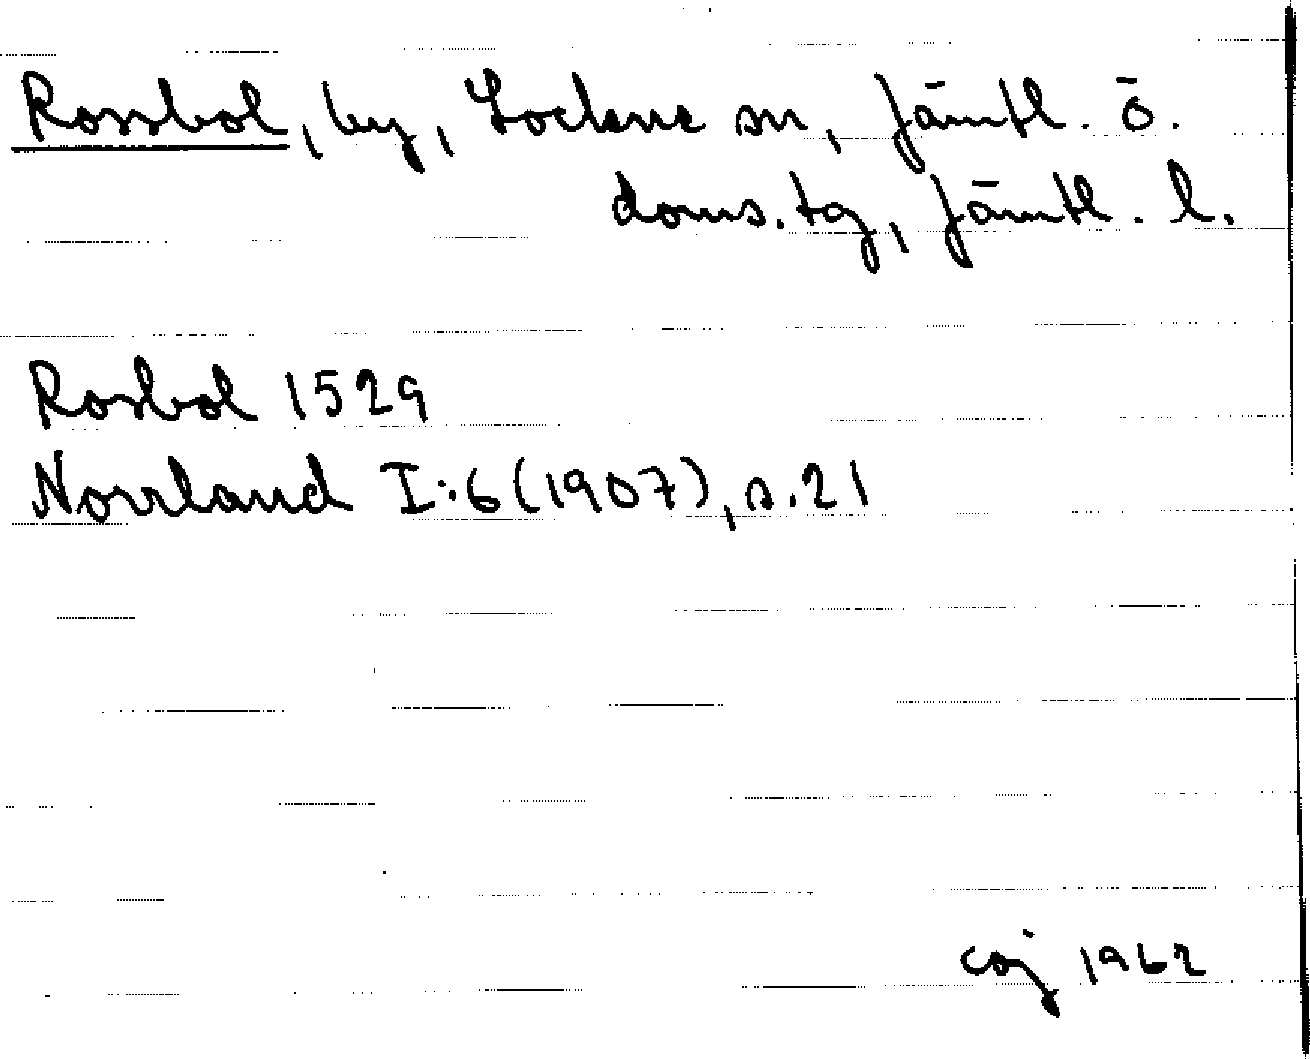 Rossbol, by, Lockne sn, Jämtl. ö.
doms.tg, Jämtl. l.
Rosbol 1529
Norrland I:6 (1907), s.21
caj 1962